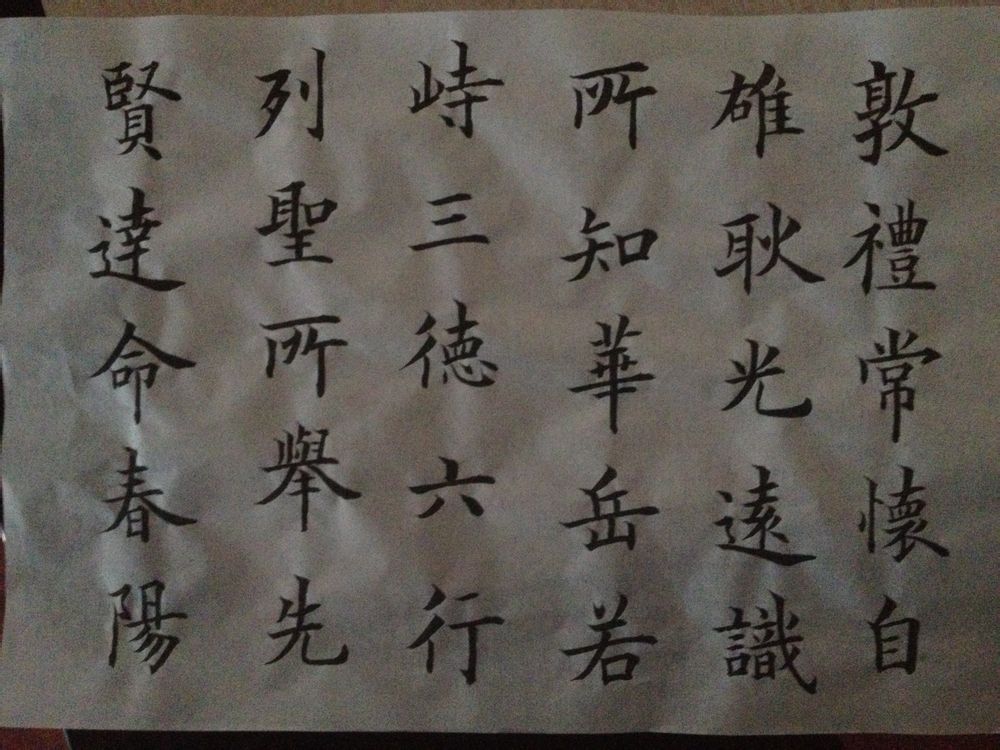 敦禮常懷自
雄耿光遠識
所知華岳若
峙三德六行
列聖所舉先
賢達命春陽